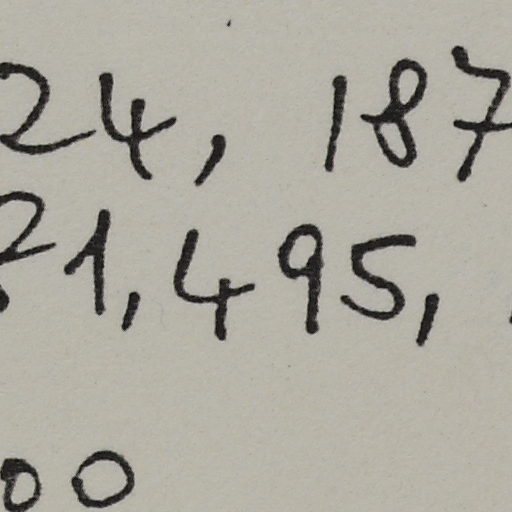 24, 187
21, 495,
00